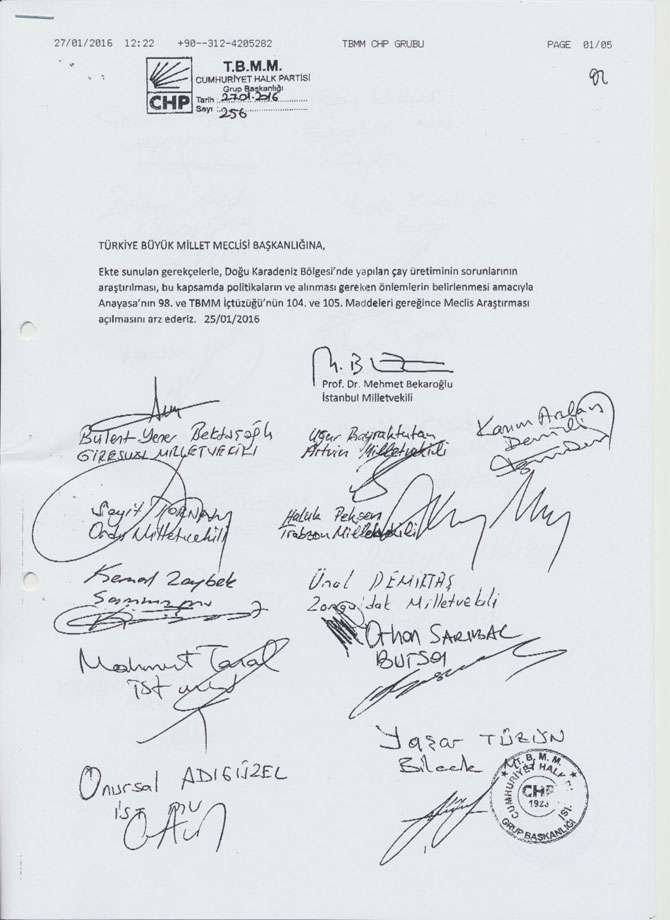 27/01/2016 12:22 +90--312-4205282 TBMM CHP GRUBU PAGE 01/05
T.B.M.M.
CUMHURİYET HALK PARTİSİ
Grup Başkanlığı
CHP
Tarih : 27.01.2016
Sayı : 256
TÜRKİYE BÜYÜK MİLLET MECLİSİ BAŞKANLIĞINA,
Ekte sunulan gerekçelerle, Doğu Karadeniz Bölgesi'nde yapılan çay üretiminin sorunlarının
araştırılması, bu kapsamda politikaların ve alınması gereken önlemlerin belirlenmesi amacıyla
Anayasa'nın 98. ve TBMM İçtüzüğü'nün 104. ve 105. Maddeleri gereğince Meclis Araştırması
açılmasını arz ederiz. 25/01/2016
M. B
Prof. Dr. Mehmet Bekaroğlu
İstanbul Milletvekili
Bülent Yener Bektaşoğlu
GİRESUN MİLLETVEKİLİ
Uğur Bayraktutan
Artvin Milletvekili
Kazım Arslan
Denizli
Seyit TORUN
Ordu Milletvekili
Haluk Pekşen
Trabzon Milletvekili
Kemal Zeybek
Samsun
Ünal DEMİRTAŞ
Zonguldak Milletvekili
Orhan SARIBAL
BURSA
Mahmut Tanal
İST
Yaşar TÜZÜN
Bilecik
Onursal ADIGÜZEL
İST MV
T. B. M. M.
CUMHURİYET HALK
CHP
1923
GRUP BAŞKANLIĞI